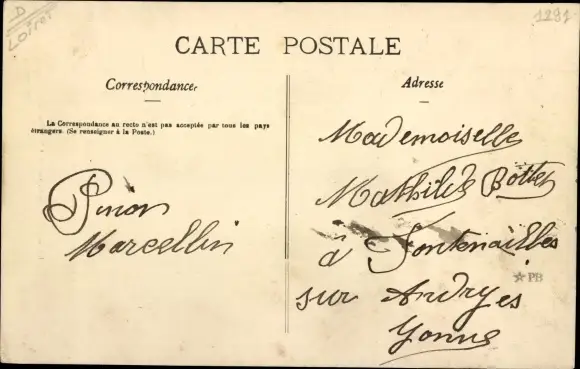 D
Loiret
1291
CARTE POSTALE
Correspondance
Adresse
La Correspondance au recto n'est pas acceptée par tous les pays
étrangers. (Se renseigner à la Poste.)
Mademoiselle
Mathilde Bottet
à Fontenailles
sur Andryes
Yonne
Pinon
Marcellin
PB